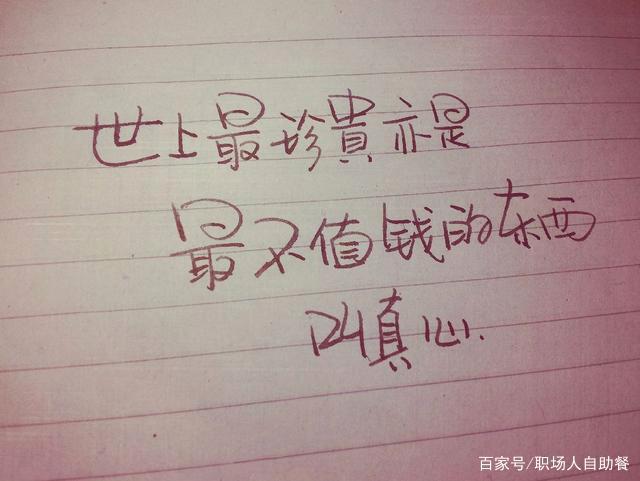 世上最珍貴亦是
最不值钱的东西
叫真心.
百家号/职场人自助餐